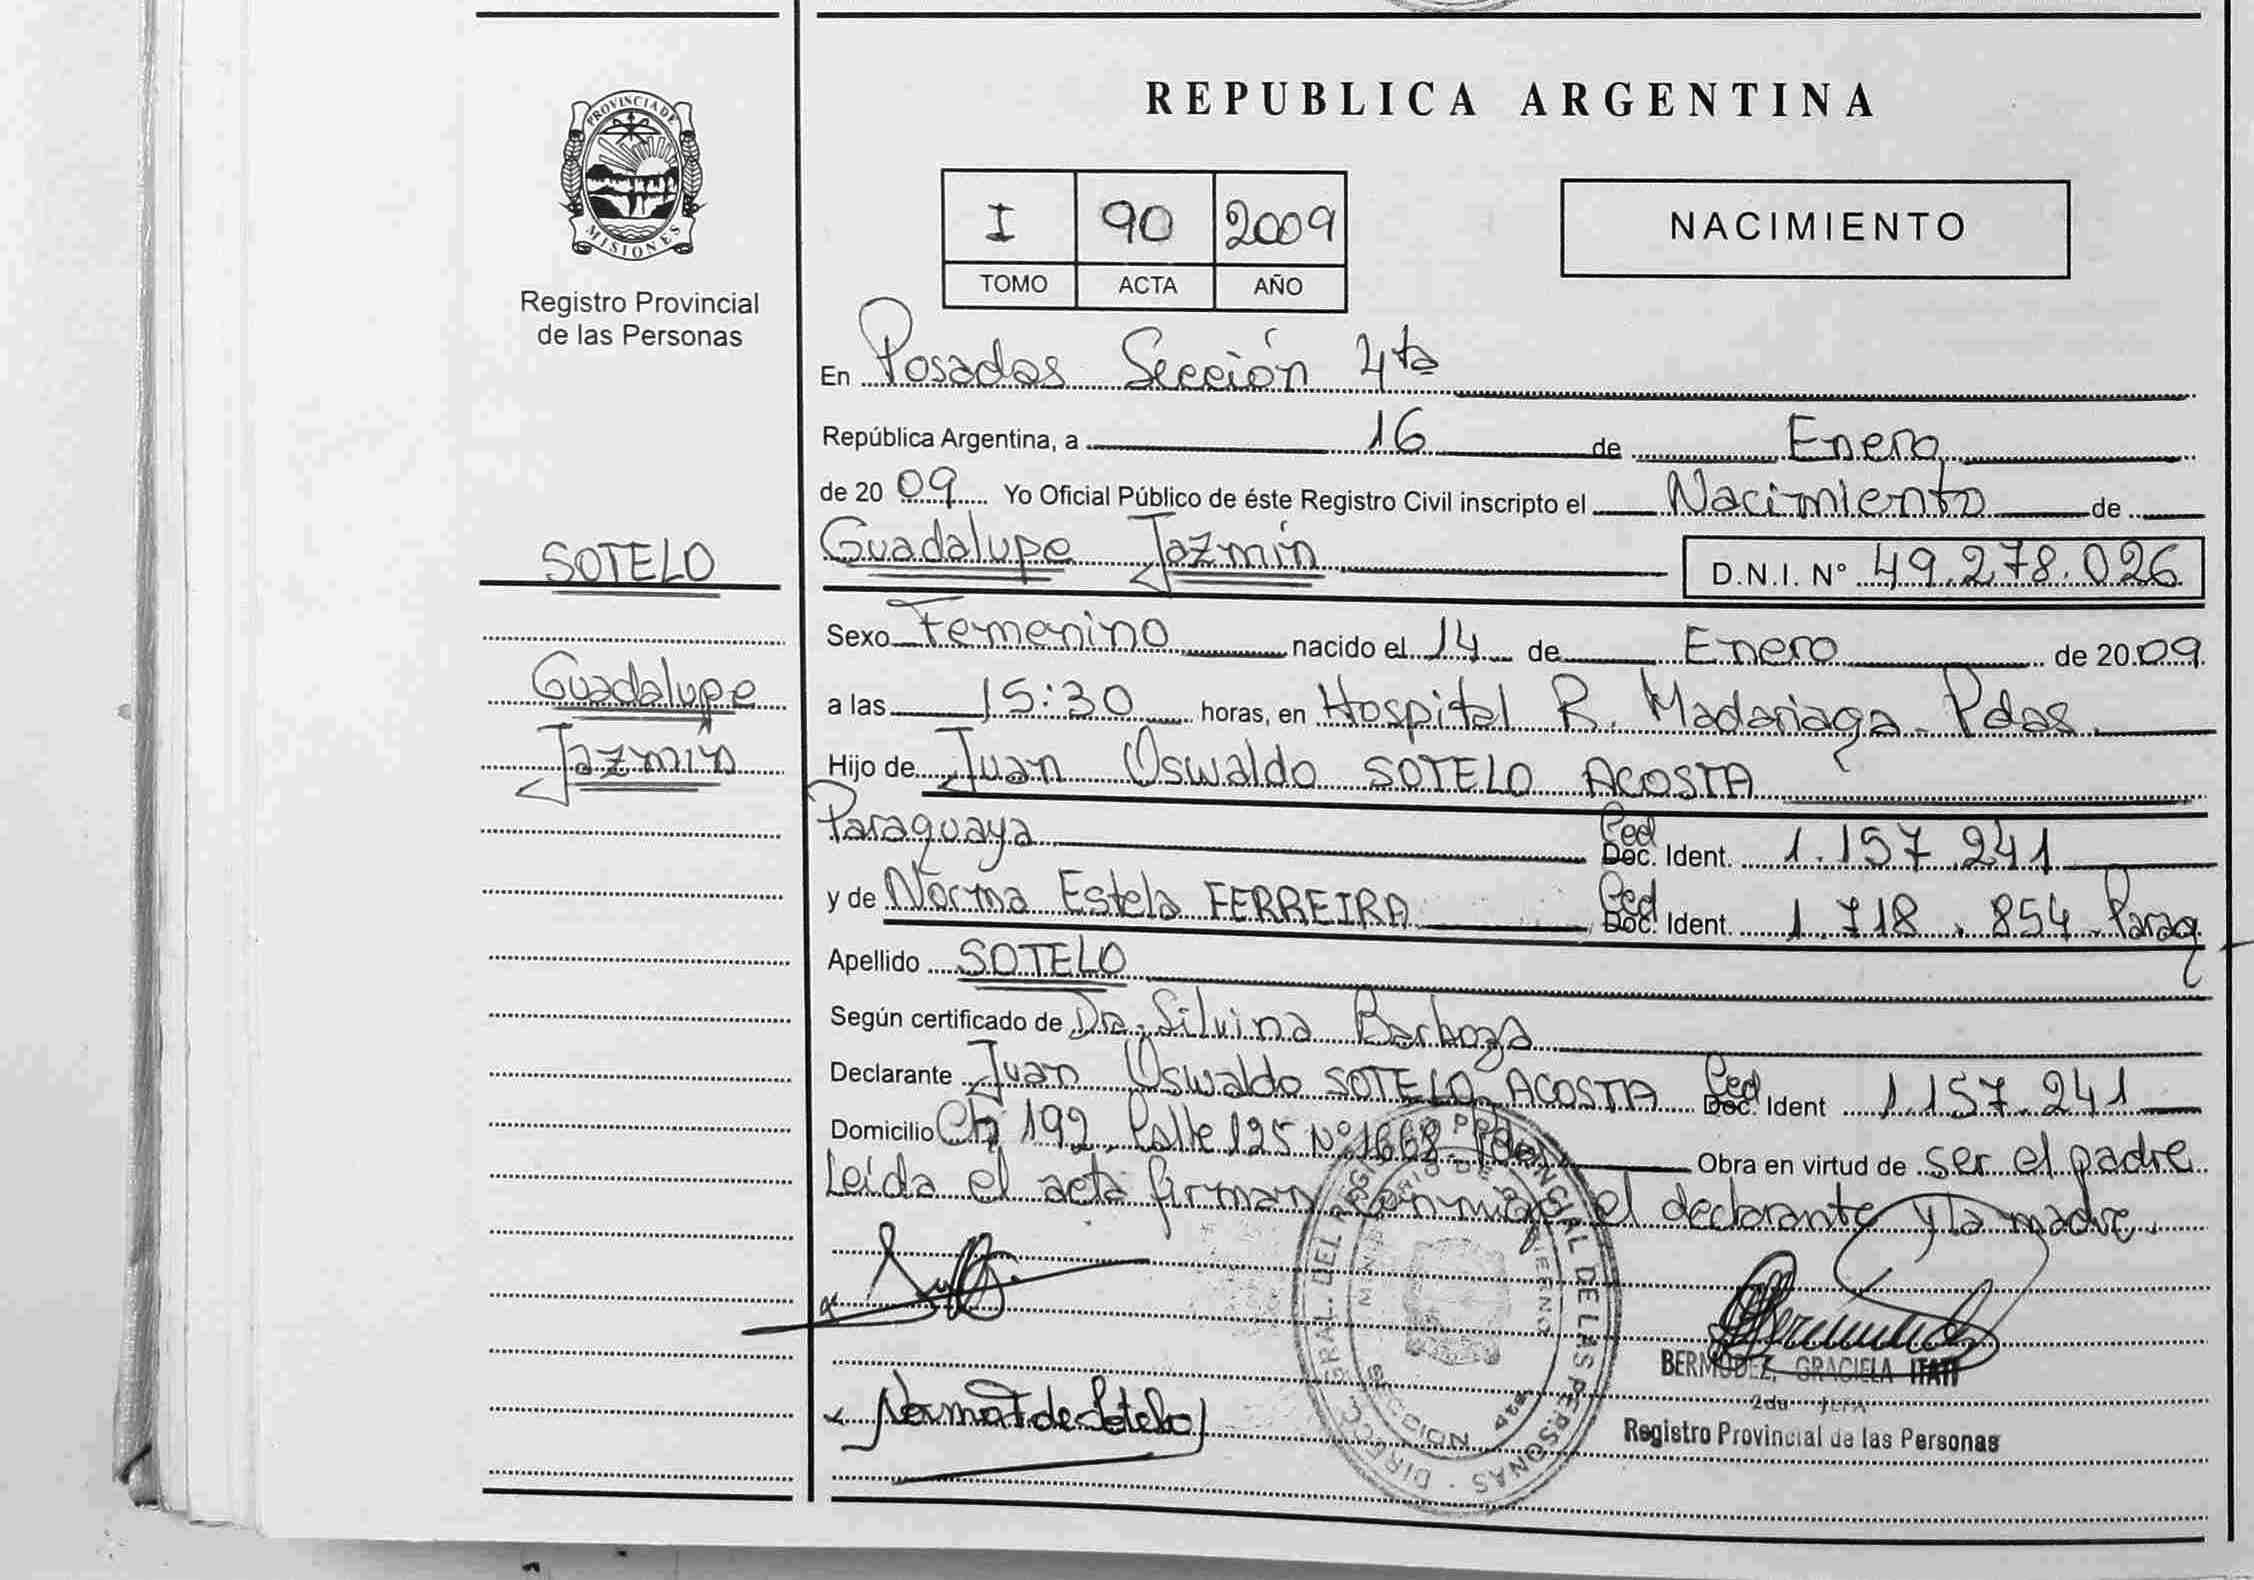 REPUBLICA ARGENTINA
PROVINCIA DE
MISIONES
Registro Provincial
de las Personas
I 90 2009
TOMO ACTA AÑO
NACIMIENTO
En Posadas Sección 4ta
República Argentina, a 16 de Enero
de 2009 Yo Oficial Público de éste Registro Civil inscripto el Nacimiento de
SOTELO
Guadalupe Jazmín D.N.I. Nº 49.278.026
Sexo Femenino nacido el 14 de Enero de 2009
Guadalupe
a las 15:30 horas, en Hospital R. Madariaga - Pdas
Jazmín
Hijo de Juan Oswaldo SOTELO ACOSTA
Paraguaya Ced Doc. Ident. 1.157.241
y de Norma Estela FERREIRA Ced Doc. Ident. 1.718.854 Parag
Apellido SOTELO
Según certificado de Dra. Silvina Barboza
Declarante Juan Oswaldo SOTELO ACOSTA Ced Doc. Ident 1.157.241
Domicilio Ch 192 Calle 125 Nº 1668 Obra en virtud de ser el padre
Leída el acta firman conmigo el declarante y la madre.
DIREC. GRAL. DEL REGISTRO PROVINCIAL DE LAS PERSONAS
MINISTERIO DE GOBIERNO
SECCION 4ta
Norma F de Sotelo
BERMUDEZ, GRACIELA ITATI
2da JEFA
Registro Provincial de las Personas